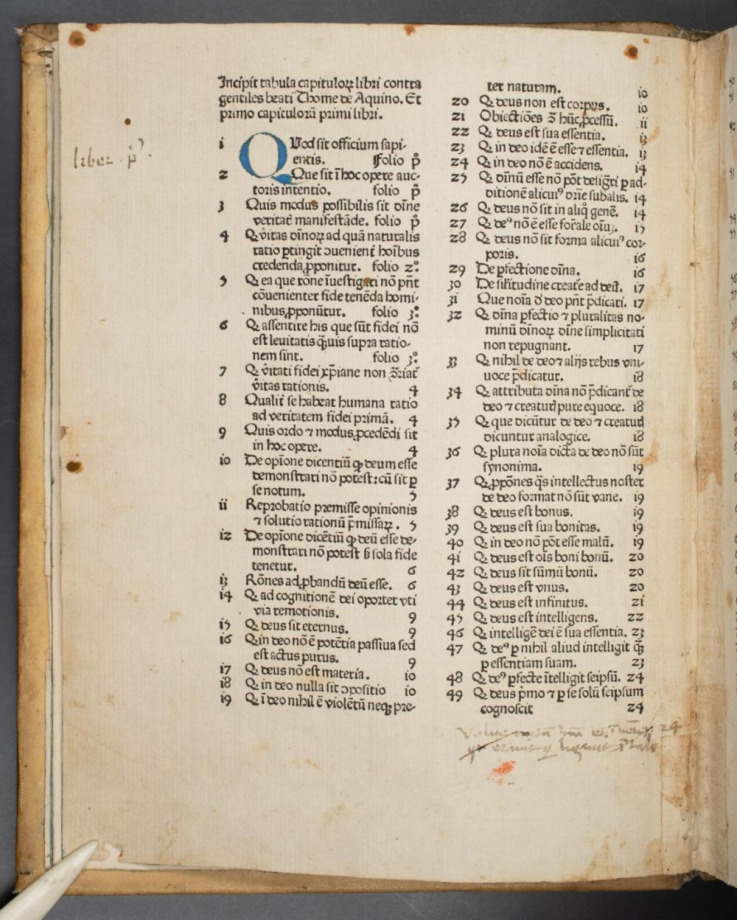 liber pꝰ.
Incipit tabula capitulorꝝ libri contra
gentiles beati Thome de Aquino. Et
primo capitulorū primi libri.
i QVod sit officium sapi-
entis. Folio p̊
2 Que sit ī hoc opere auc-
toris intentio. folio p̊
3 Quis modus possibilis sit diīne
veritatē manifestāde. folio p̊
4 Q̵ v̄itas diīnoꝝ ad quā naturalis
ratio ꝑtingit ↄuenient̄ hoībus
credenda ꝓponitur. folio 2.
5 Q̵ ea que rōne īuestigari nō pn̄t
cōuenienter fide tenēda homi-
nibus ꝓponūtur. folio 3.
6 Q̵ assentire his que sūt fidei nō
est leuitatis q̄uis supra ratio-
nem sint. folio 3.
7 Q̵ v̄itati fidei xp̄iane non ↄ̄riat̄
v̄itas rationis. 4
8 Qualit̄ se habeat humana ratio
ad veritatem fidei primā. 4
9 Quis ordo ⁊ modus ꝓcedēdi sit
in hoc opere. 4
io De opīone dicentiū ꝙ deum esse
demonstrari nō potest: cū sit ꝑ
se notum. 5
ii Reprobatio premisse opinionis
⁊ solutio rationū p̄missaꝝ. 5
i2 De opīone dicētiū ꝙ deū esse de-
monstrari nō potest ß sola fide
tenetur. 6
i3 Rōnes ad ꝓbandū deū esse. 6
i4 Q̵ ad cognitionē dei oportet vti
via remotionis. 9
i5 Q̵ deus sit eternus. 9
i6 Q̵ in deo nō ē potētia passiua sed
est actus purus. 9
i7 Q̵ deus nō est materia. io
i8 Q̵ in deo nulla sit ↄpositio io
i9 Q̵ ī deo nihil ē violētū neqꝫ pre-
ter naturam. io
20 Q̵ deus non est corpus. io
2i Obiectiōes ↄ̄ hūc ꝓcessū. ii
22 Q̵ deus est sua essentia. i3
23 Q̵ in deo idē ē esse ⁊ essentia. i3
24 Q̵ in deo nō ē accidens. i4
25 Q̵ diīnū esse nō pōt desigrī ꝑ ad-
ditionē alicuiꝰ dr̄ie subalis. i4
26 Q̵ deus nō sit in aliq̊ genē. i4
27 Q̵ deꝰ nō ē esse for̄ale oīu3. i5
28 Q̵ deus nō sit forma alicuiꝰ cor-
poris. i6
29 De ꝑfectione diīna. i6
30 De silitudine create ad deū. i7
3i Que noīa d̄ deo pn̄t p̄dicari. i7
32 Q̵ diīna ꝑfectio ⁊ pluralitas no-
minū diīnoꝝ diīne simplicitati
non repugnant. i7
33 Q̵ nihil de deo ⁊ alijs rebus vni-
uoce p̄dicatur. i8
34 Q̵ attributa diīna nō p̄dicant̄ de
deo ⁊ creatur̄ pure equoce. i8
35 Q̵ que dicūtur de deo ⁊ creatur̄
dicuntur analogice. i8
36 Q̵ plura noīa dicta de deo nō sūt
synonima. i9
37 Q̵ ꝓpōnes q̄s intellectus noster
de deo format nō sūt vane. i9
38 Q̵ deus est bonus. i9
39 Q̵ deus est sua bonitas. i9
40 Q̵ in deo nō pōt esse malū. i9
4i Q̵ deus est oīs boni bonū. 20
42 Q̵ deus sit sūmū bonū. 20
43 Q̵ deus est vnus. 20
44 Q̵ deus est infinitus. 2i
45 Q̵ deus est intelligens. 22
46 Q̵ intelligē dei ē sua essentia. 23
47 Q̵ deꝰ ꝑ nihil aliud intelligit q̄̄
ꝑ essentiam suam. 23
48 Q̵ deꝰ ꝑfecte ītelligit seipsū. 24
49 Q̵ deus p̄mo ⁊ ꝑ se solū seipsum
cognoscit 24
24